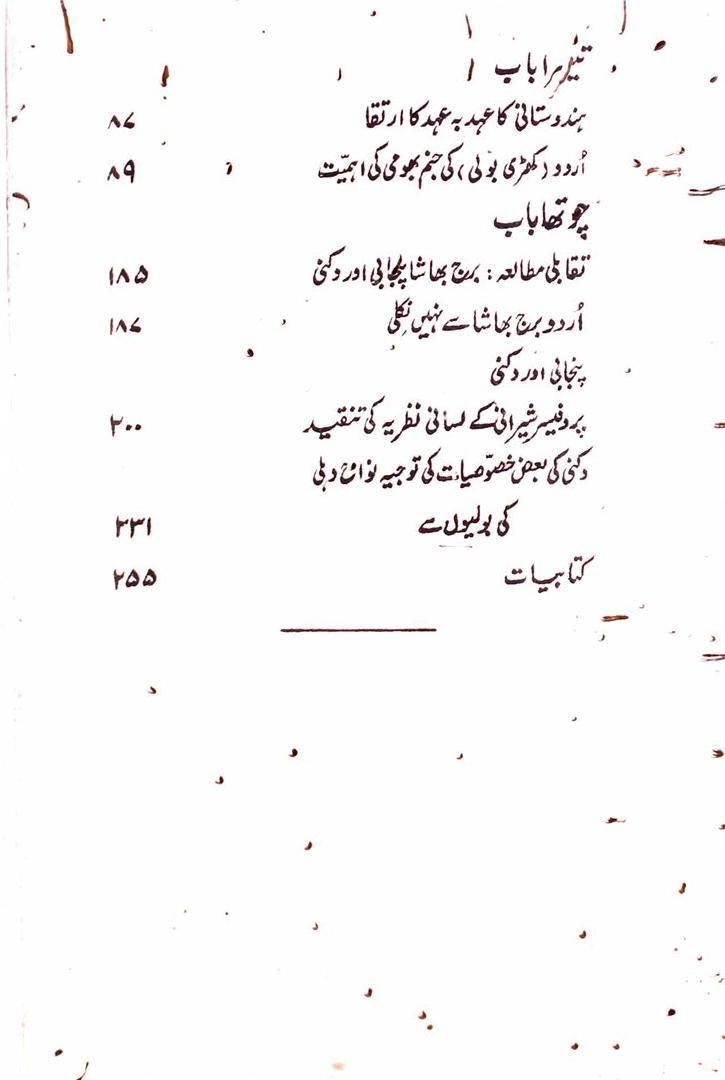 تیسرا باب
ہندوستانی کا عہد بہ عہد کا ارتقا ۸۷
اُردو (کھڑی بولی) کی جنم بھومی کی اہمیّت ۸۹
چوتھا باب
تقابلی مطالعہ: برج بھاشا پنجابی اور دکنی ۱۸۵
اُردو برج بھاشا سے نہیں نکلی ۱۸۷
پنجابی اور دکنی
پروفیسر شیرانی کے لسانی نظریہ کی تنقید ۲۰۰
دکنی کی بعض خصوّصیات کی توجیہ نواح دہلی
کی بولیوں سے ۲۳۱
کتابیات ۲۵۵